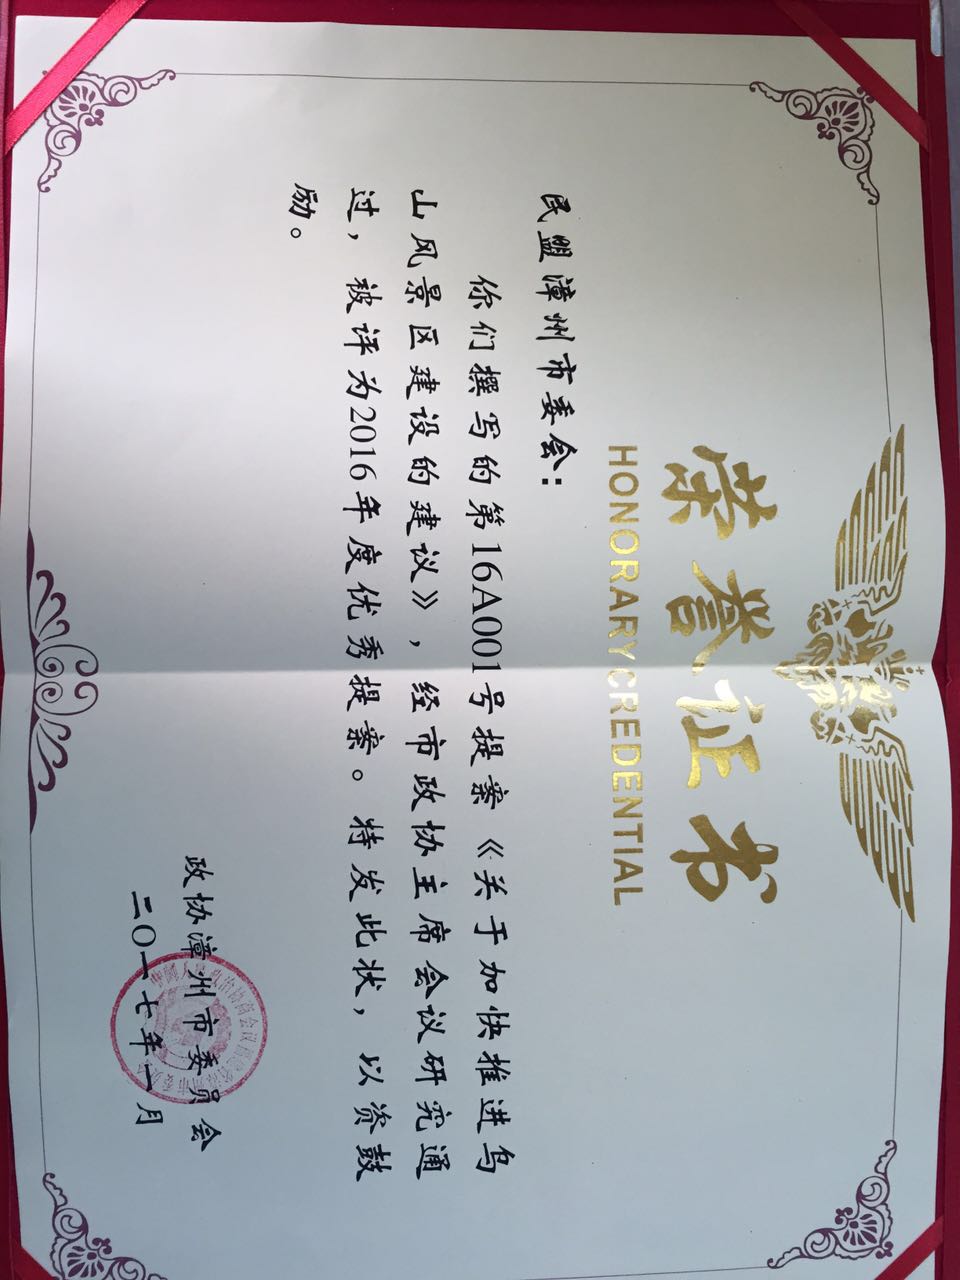 荣誉证书
HONORARY CREDENTIAL
民盟漳州市委会：
你们撰写的第16A001号提案《关于加快推进乌
山风景区建设的建议》，经市政协主席会议研究通
过，被评为2016年度优秀提案。特发此状，以资鼓
励。
政协漳州市委员会
二〇一七年一月